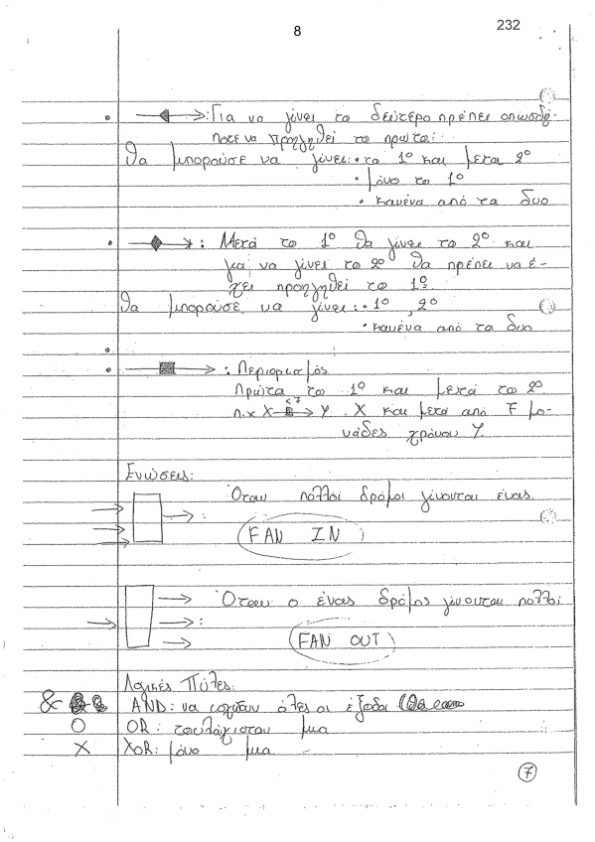 8
232
: Για να γίνει το δεύτερο πρέπει οπωσδή-
ποτε να προηγηθεί το πρώτο.
Θα μπορούσε να γίνει: • το 1º και μετά 2º
• μόνο το 1º
• κανένα από τα δυο
: Μετά το 1º θα γίνει το 2º και
για να γίνει το 2º θα πρέπει να έ-
χει προηγηθεί το 1º
Θα μπορούσε να γίνει: • 1º, 2º
• κανένα από τα δυο
: Περιορισμός
Πρώτα το 1º και μετά το 2º
<7
π.χ X → Y . X και μετά από 7 μο-
νάδες χρόνου Y.
Ενώσεις:
: Όταν πολλοί δρόμοι γίνονται ένας
FAN IN
: Όταν ο ένας δρόμος γίνονται πολλοί
FAN OUT
Λογικές Πύλες:
& AND: να ισχύουν όλες οι έξοδοι
O OR: τουλάχιστον μια
X XOR: μόνο μια
7